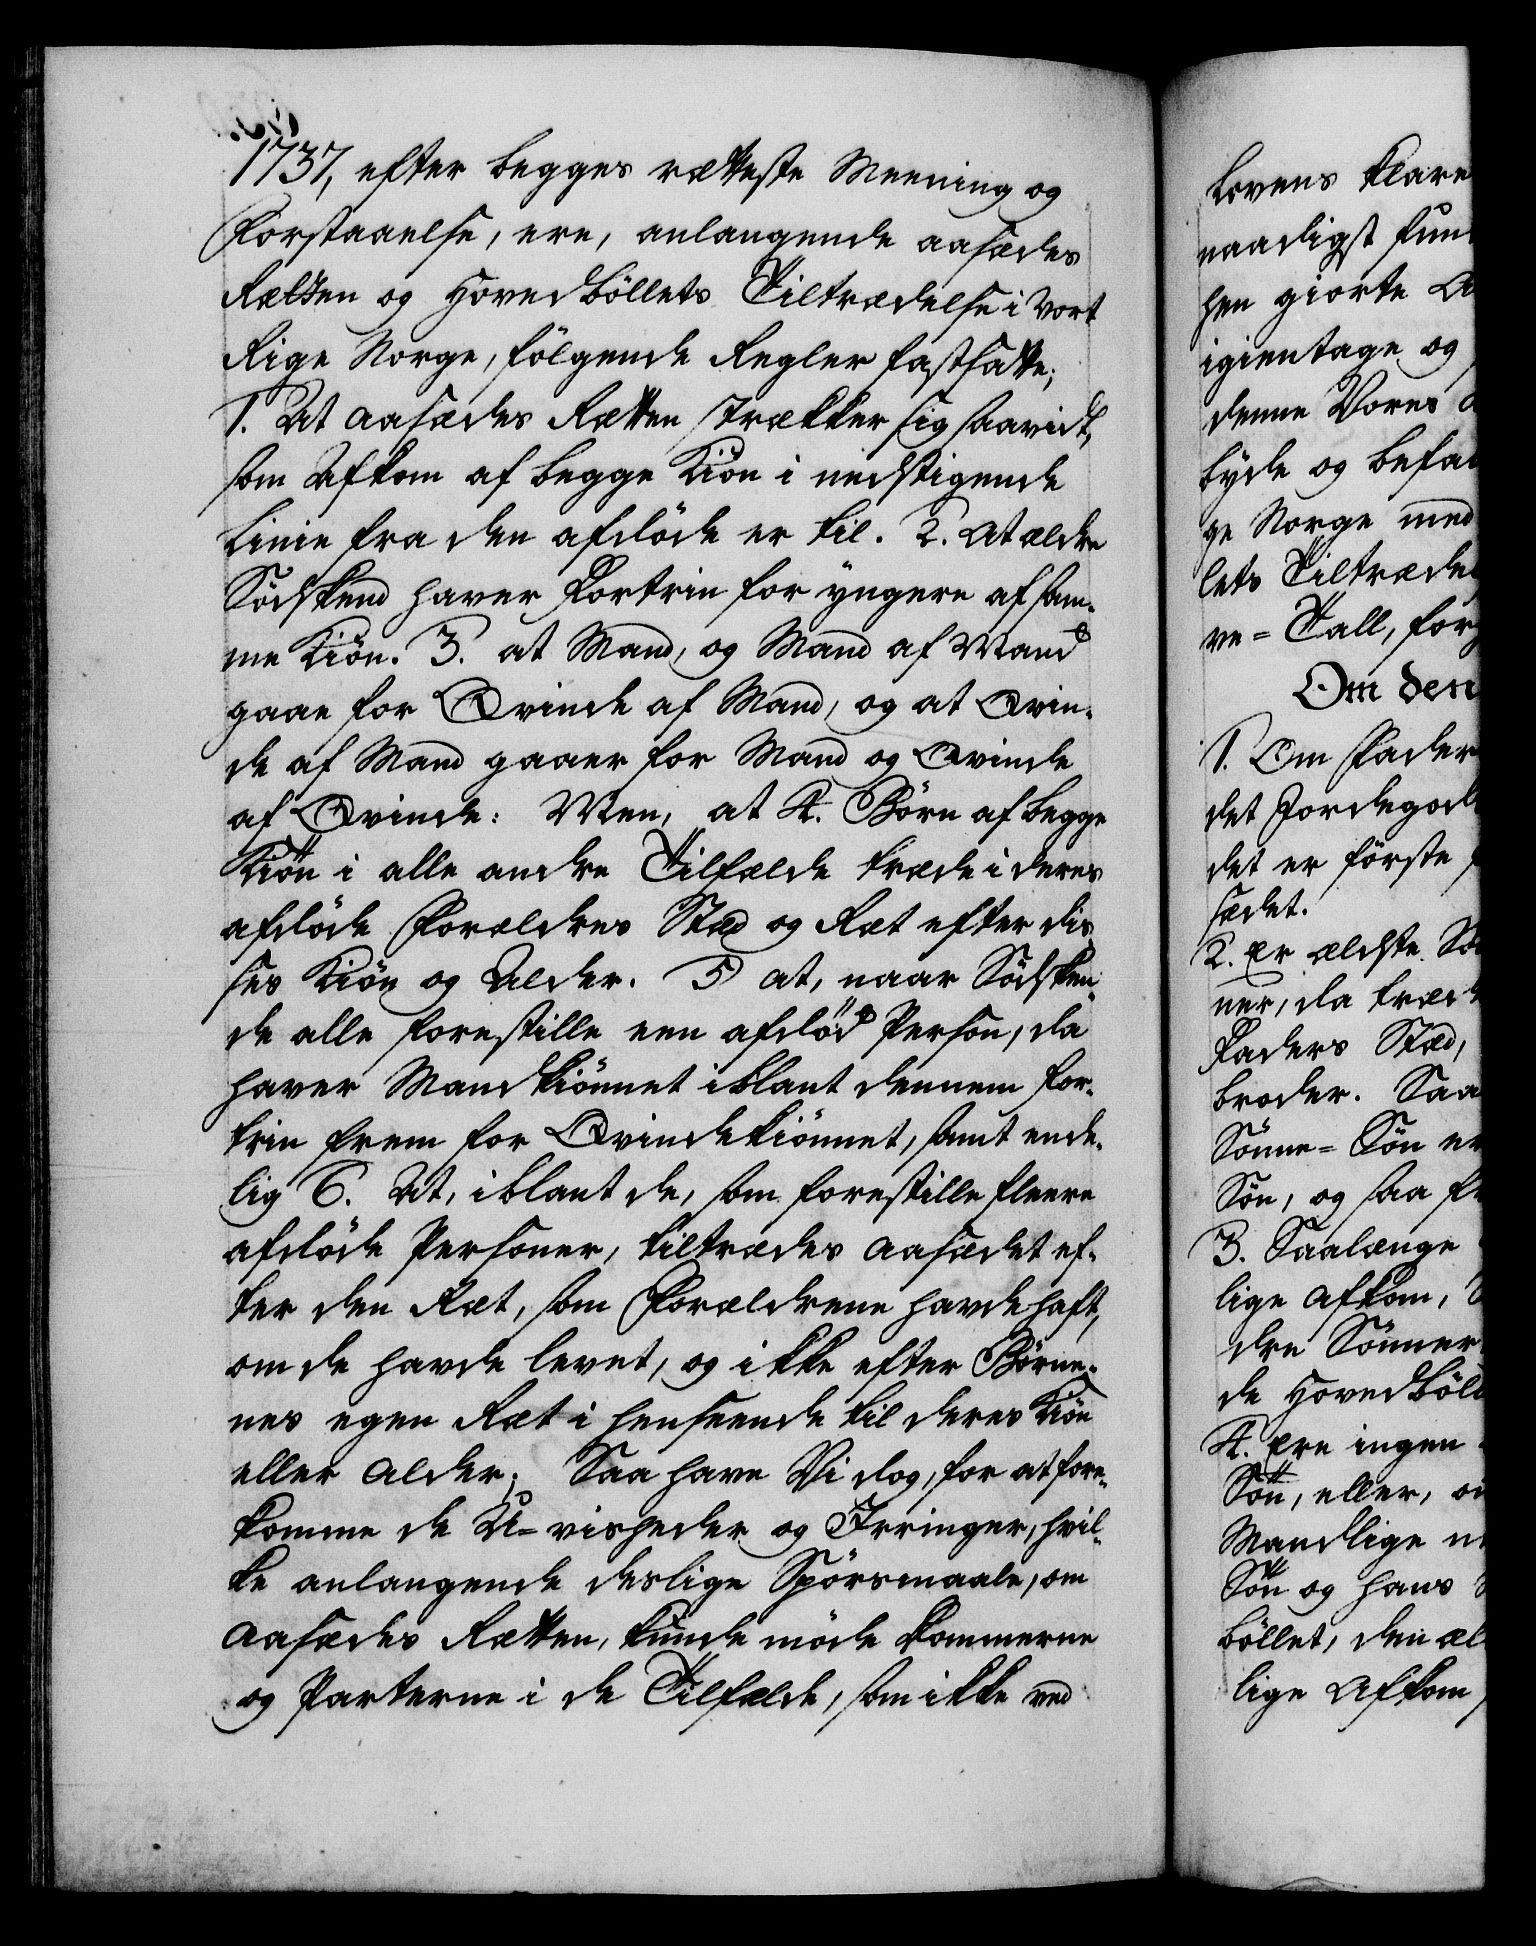 1737, efter begges rætteste Meening og
Forstaaelse, ere, anlangende aasædes
Rætten og Hovedböllets Tiltrædelse i Vort
Rige Norge, fölgende Regler fastsatte;
1. At aasædes Rætten strækker sig saavidt,
som Afkom af begge Kiön i nedstigende
Linie fra den afdöde er til. 2. At ældre
Södskend haver Fortrin for yngere af sam-
me Kiön. 3. at Mand, og Mand af Mand
gaae for Qvinde af Mand, og at Qvin-
de af Mand gaaer for Mand og Qvinde
af Qvinde: Men, at 4. Börn af begge
Kiön i alle andre Tilfælde træde i deres
afdöde Forældres Stæd og Ræt efter dis-
ses Kiön og Alder. 5 at, naar Södsken-
de alle forestille een afdöd Person, da
haver Mandkiönnet iblant dennem for-
trin frem for Qvindekiönnet, samt ende-
lig 6. At, iblant de, som forestille fleere
afdöde Personer, tiltrædes Aasædet ef-
ter den Ræt, som Forældrene havde haft,
om de havde levet, og ikke efter Börne-
nes egen Ræt i henseende til deres Kiön
eller Alder; Saa have Vi dog, for at fore-
komme de U-visheder og Irringer, hvil-
ke anlangende deslige Spörsmaale, om
Aasædes Rætten, kunde möde Dommerne
og Parterne i de Tilfælde, som ikke ved
Lovens klare
naadigst fun
hen giorte A
igientage og
denne Vores
byde og befa
ge Norge med
lets Tiltræde
ve-Fall, for
Om den
1. Om Fader
det Jordegods
det er förste
sædet.
2. Er ældste Sö
ner, da træd
Faders Stæd,
broder. Saa
Sönne-Sön er
Sön, og saa fr
3. Saalænge
lige Afkom,
dre Sönner
de Hovedböl
4. Ere ingen
Sön, eller, om
Mandlige n
Sön og hans
böllet, den æl
lige Afkom